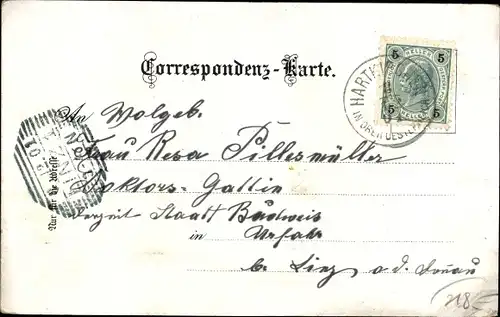 Correspondenz-Karte.
An Wolgeb.
Frau Resa Pillesmüller
Doktors-Gattin
derzeit Stadt Budweis
in Urfahr
b. Linz a. d. Donau
Nur für die Adresse
5 HELLER 5
5 5
HARTK
IN OBER OEST.
218